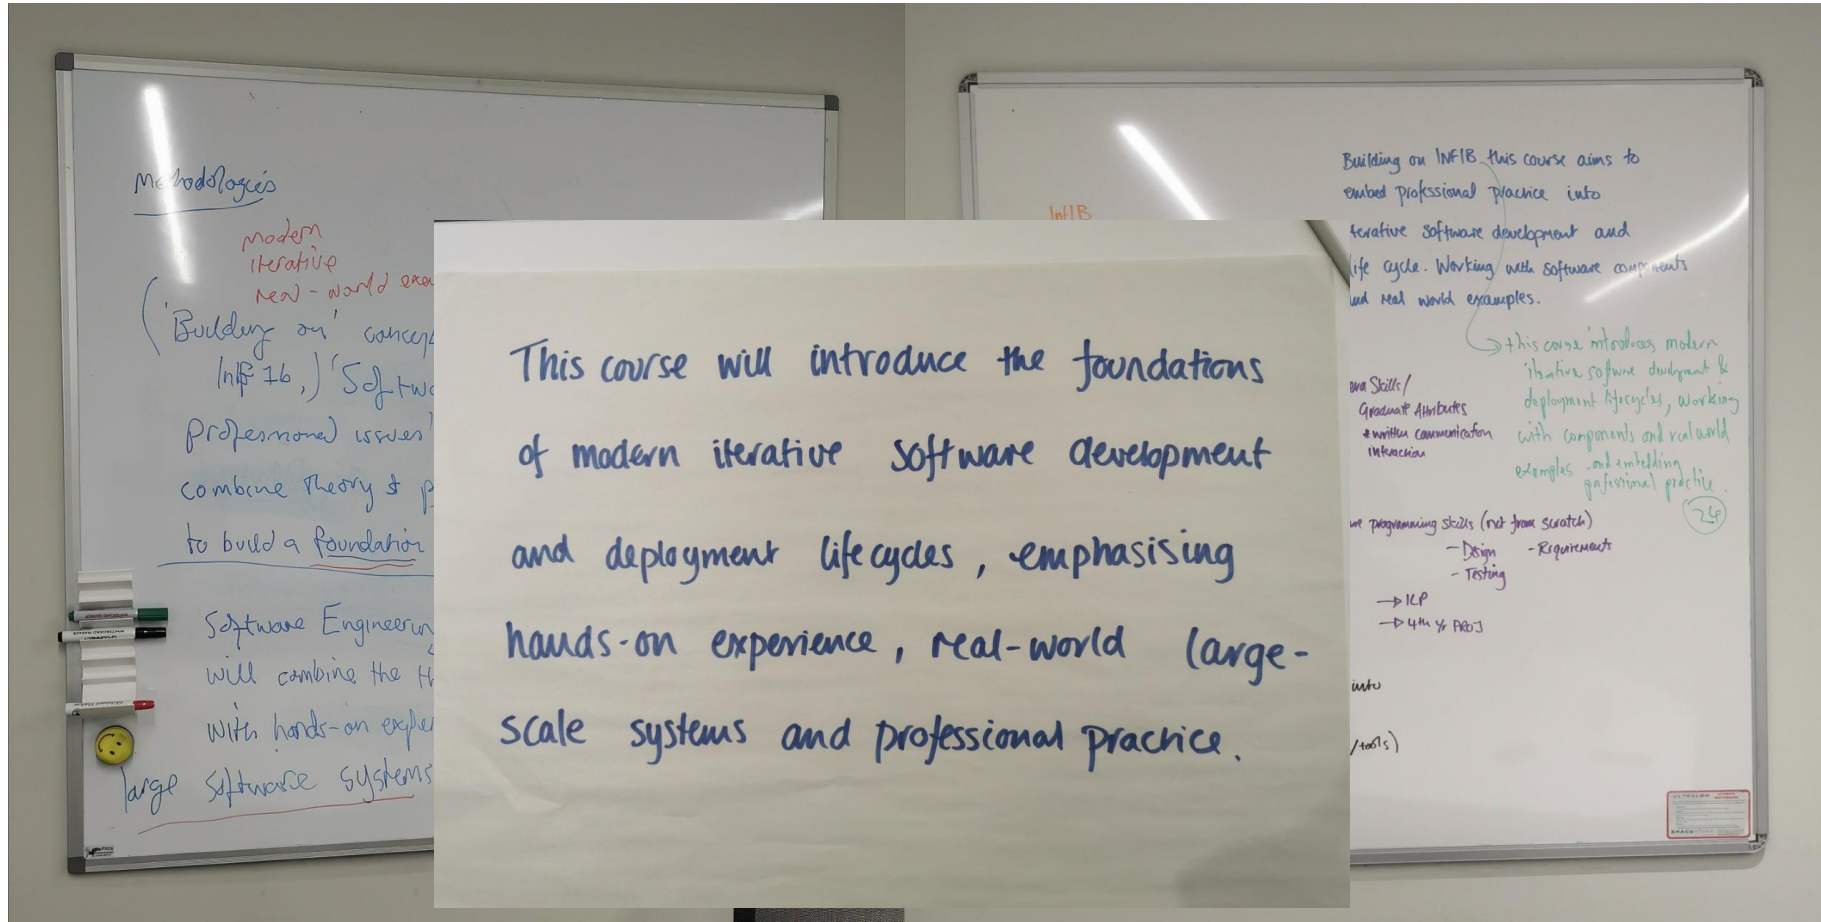 Methodologies
modern
iterative
real-world
'Building on'
Inf 1b,)
professional issues'
combine theory &
to build a foundation
Software
will combine the
with hands-on
large software systems
This course will introduce the foundations
of modern iterative software development
and deployment lifecycles, emphasising
hands-on experience, real-world large-
scale systems and professional practice.
Inf1B
Building on INF1B this course aims to
embed professional practice into
terative software development and
life cycle. Working with software components
and real world examples.
this course introduces modern
iterative software development &
deployment lifecycles, working
with components and real world
examples and embedding
professional practice.
24
Skills/
Graduate Attributes
written communication
interaction
programming skills (not from scratch)
- Design - Requirements
- Testing
→ ILP
→ 4th yr PROJ
into
/tools)
ULTRALON
SPACE